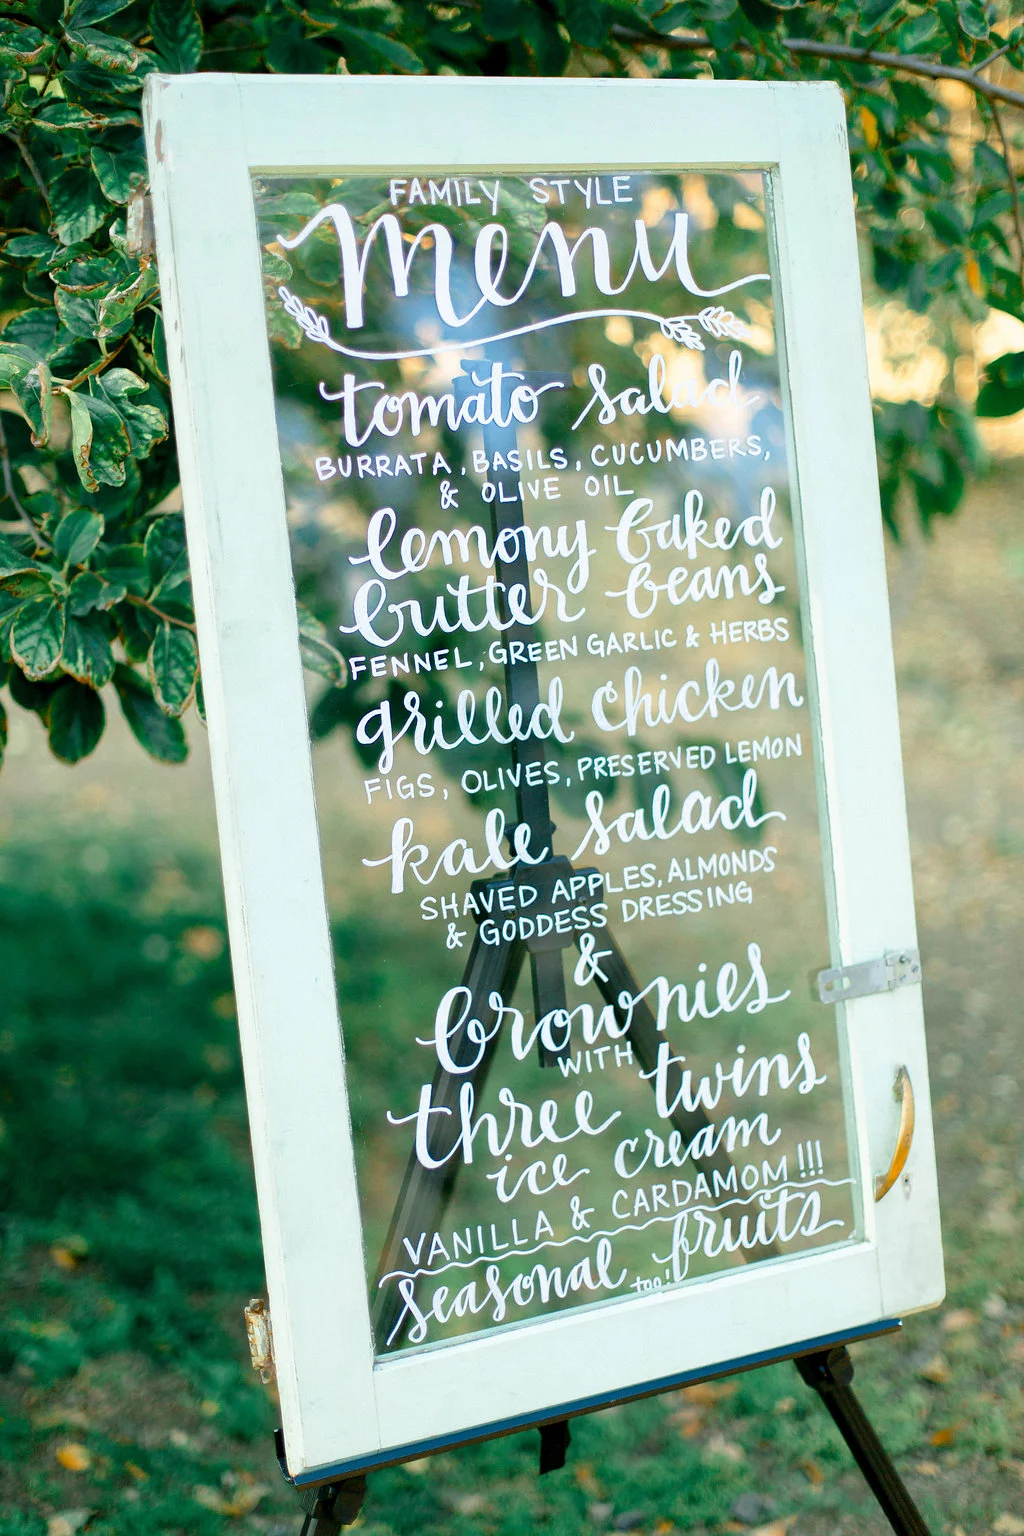 FAMILY STYLE
menu
tomato salad
BURRATA, BASILS, CUCUMBERS,
& OLIVE OIL
lemony baked
butter beans
FENNEL, GREEN GARLIC & HERBS
grilled chicken
FIGS, OLIVES, PRESERVED LEMON
kale salad
SHAVED APPLES, ALMONDS
& GODDESS DRESSING
&
brownies
WITH
three twins
ice cream
VANILLA & CARDAMOM!!!
seasonal fruits
too!